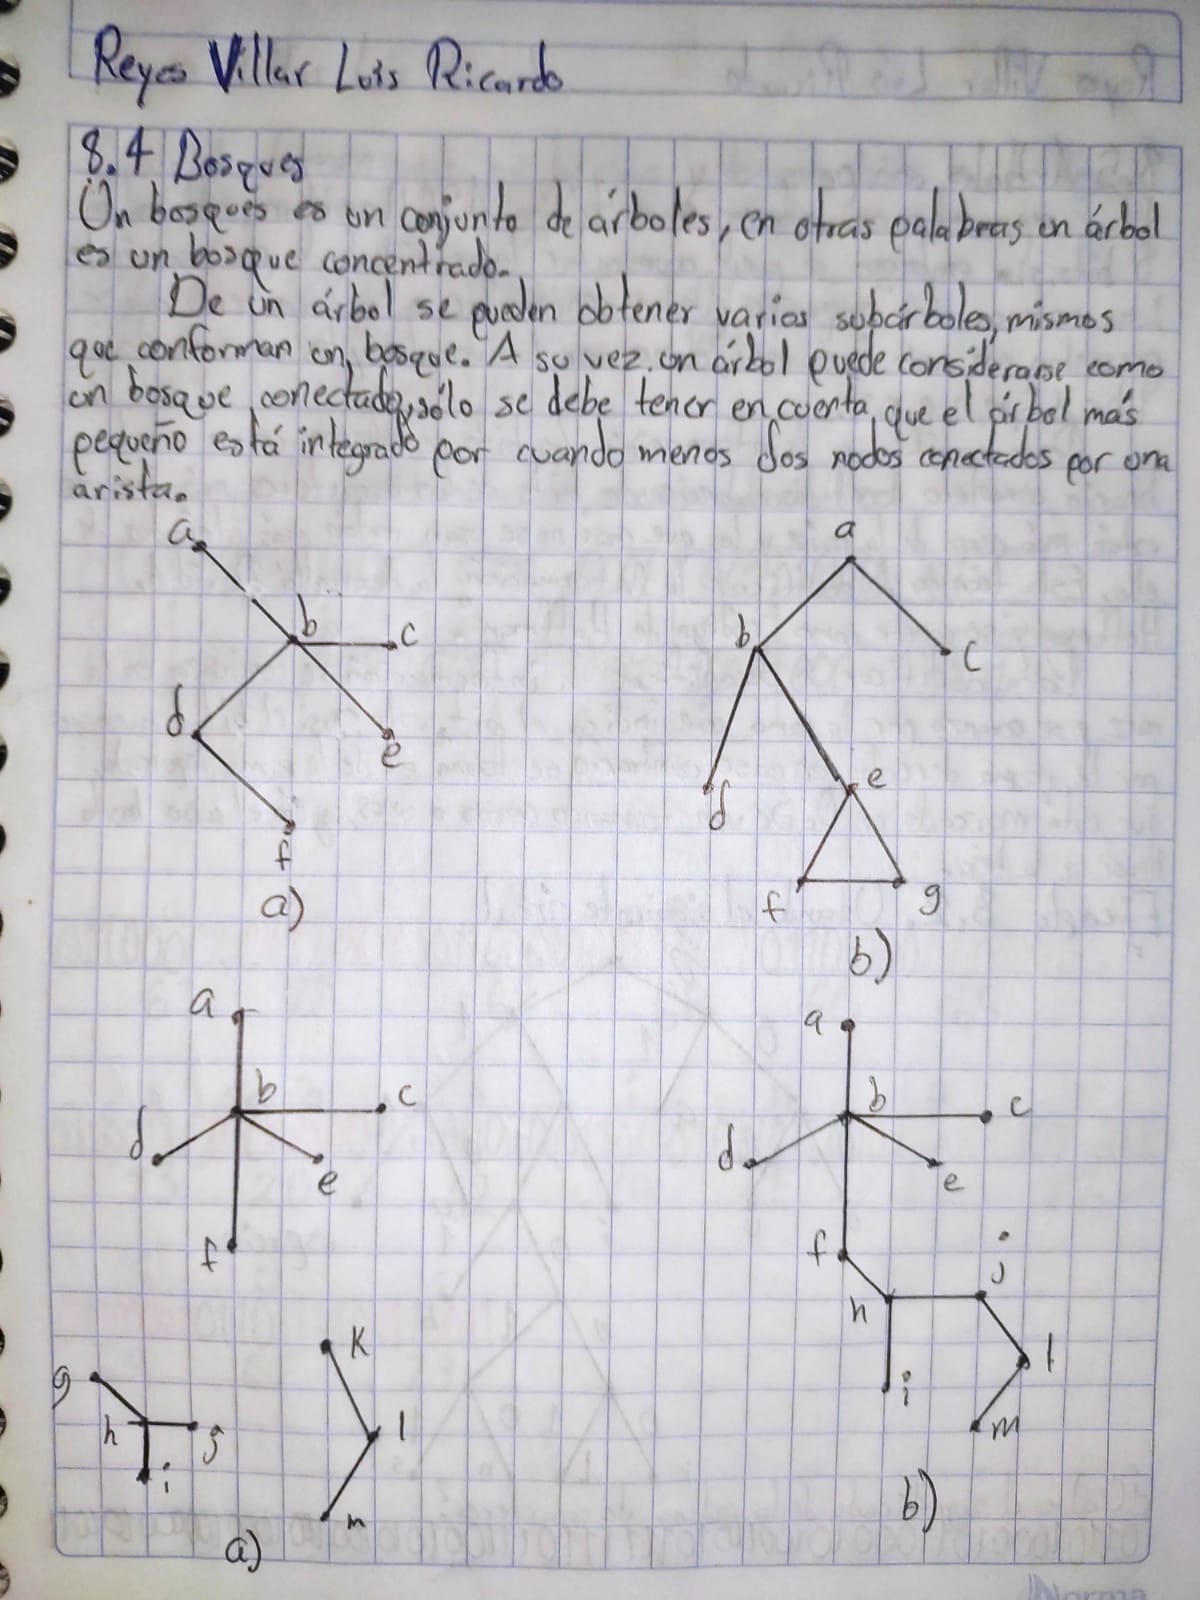 Reyes Villar Luis Ricardo
8.4 Bosques
Un bosques es un conjunto de árboles, en otras palabras un árbol
es un bosque concentrado.
De un árbol se pueden obtener varios subárboles, mismos
que conforman un bosque. A su vez un árbol puede considerarse como
un bosque conectado, sólo se debe tener en cuenta, que el árbol más
pequeño está integrado por cuando menos dos nodos conectados por una
arista.
a
b
c
d
e
f
a)
a
b
c
d
e
f
g
b)
a
b
c
d
e
f
g
h
j
i
k
l
m
a)
a
b
c
d
e
f
j
h
l
i
m
b)
Norma